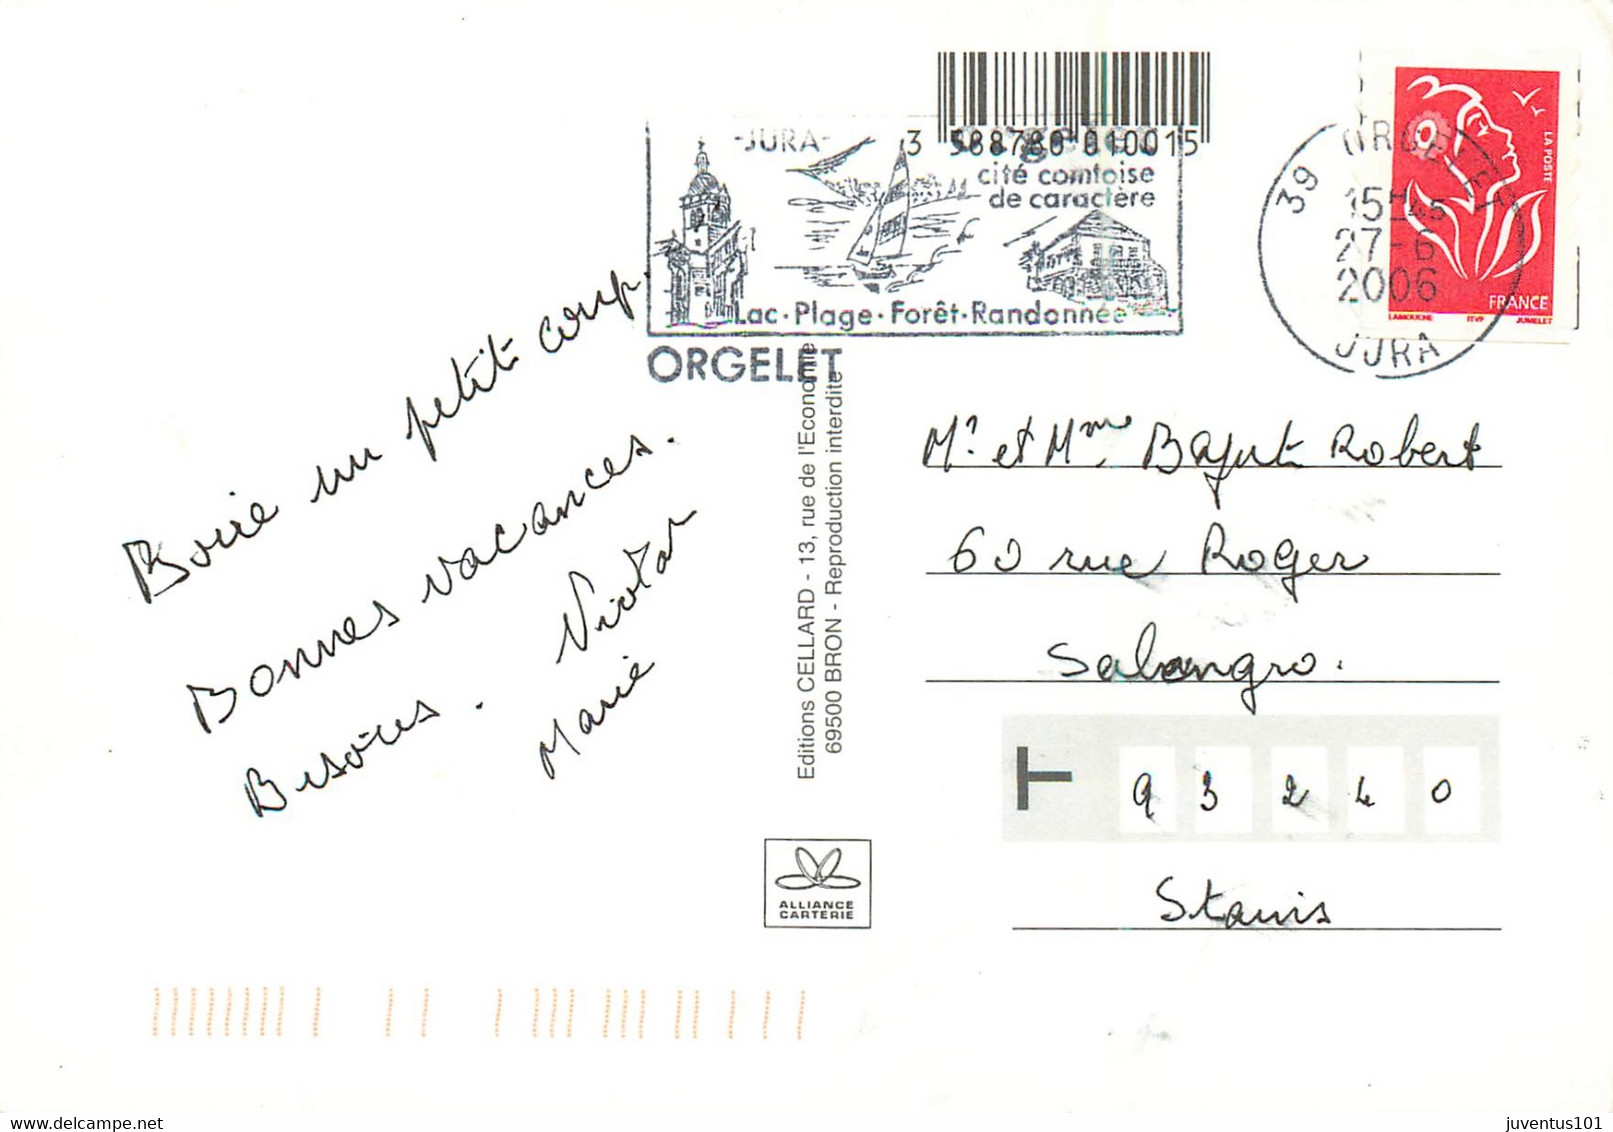 Boire un petit coup.
Bonnes vacances.
Bisous.
Marie
-JURA-
3 588780 010015
cité comtoise
de caractère
Lac·Plage·Forêt·Randonnée
ORGELET
39 ORGELET
15H45
27-6
2006
JURA
LA POSTE
FRANCE
LAMOUCHE ITVF JUMELET
Editions CELLARD - 13, rue de l'Economie
69500 BRON - Reproduction interdite
ALLIANCE
CARTERIE
Mr et Mme Bajut Robert
60 rue Roger
Salengro.
93240
Stains
delcampe.net
juventus101